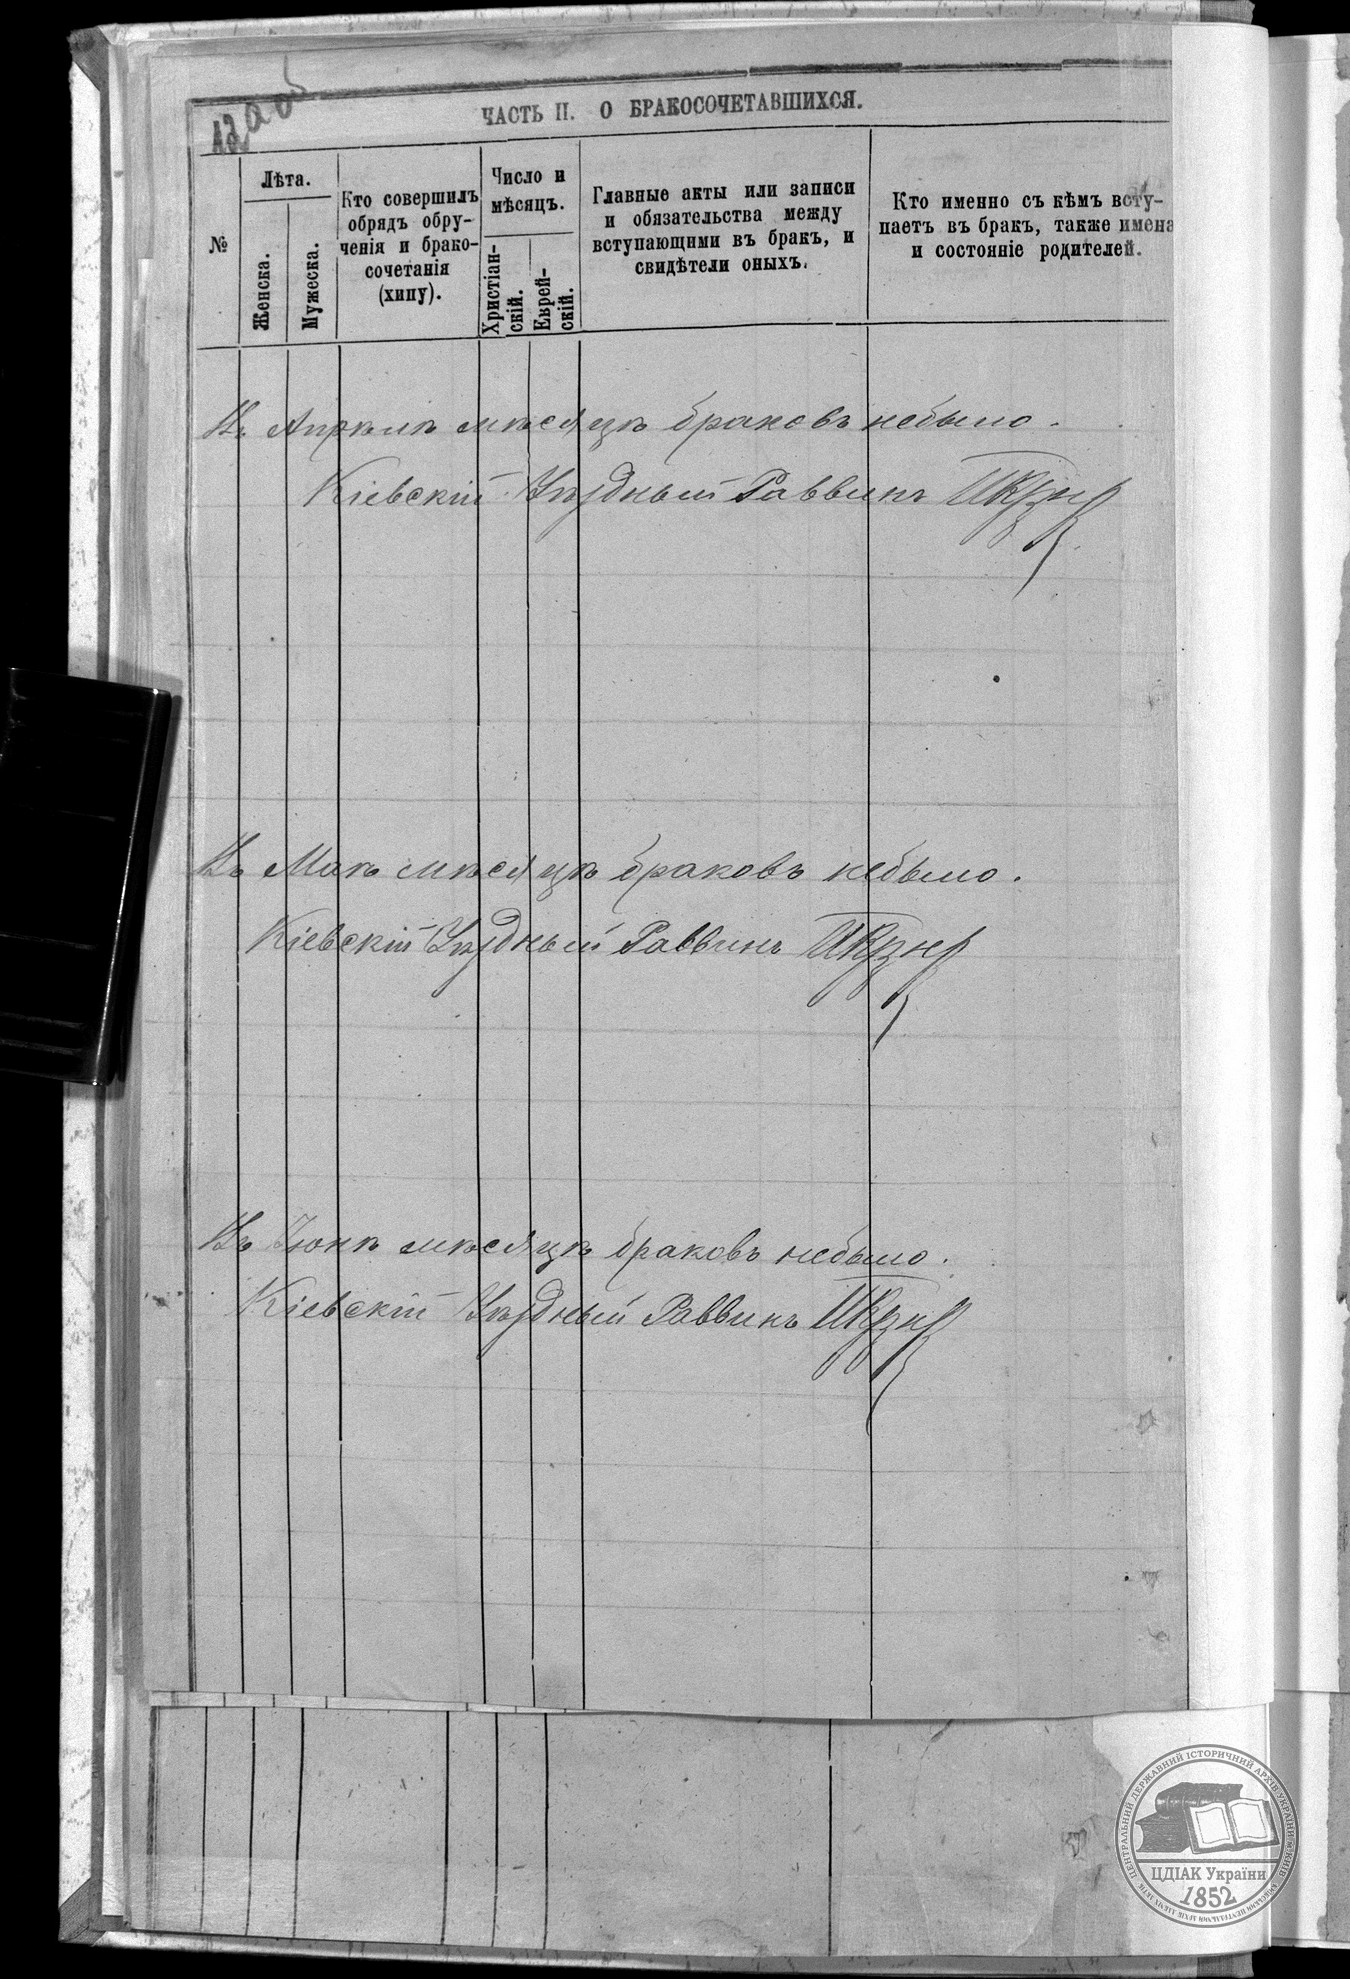 ЧАСТЬ II. О БРАКОСОЧЕТАВШИХСЯ.
№
Лѣта.
Женска.
Мужеска.
Кто совершилъ
обрядъ обру-
ченія и брако-
сочетанія
(хипу).
Число и
мѣсяцъ.
Христіан-
скій.
Еврей-
скій.
Главные акты или записи
и обязательства между
вступающими въ бракъ, и
свидѣтели оныхъ.
Кто именно съ кѣмъ всту-
паетъ въ бракъ, также имена
и состояніе родителей.
Въ Апрѣлѣ мѣсяцѣ браковъ небыло.
Кіевскій Уѣздный Раввинъ
Въ Маѣ мѣсяцѣ браковъ небыло.
Кіевскій Уѣздный Раввинъ
Въ Іюнѣ мѣсяцѣ браковъ небыло.
Кіевскій Уѣздный Раввинъ
ЦЕНТРАЛЬНИЙ ДЕРЖАВНИЙ ІСТОРИЧНИЙ АРХІВ УКРАЇНИ
ЦДІАК України
1852